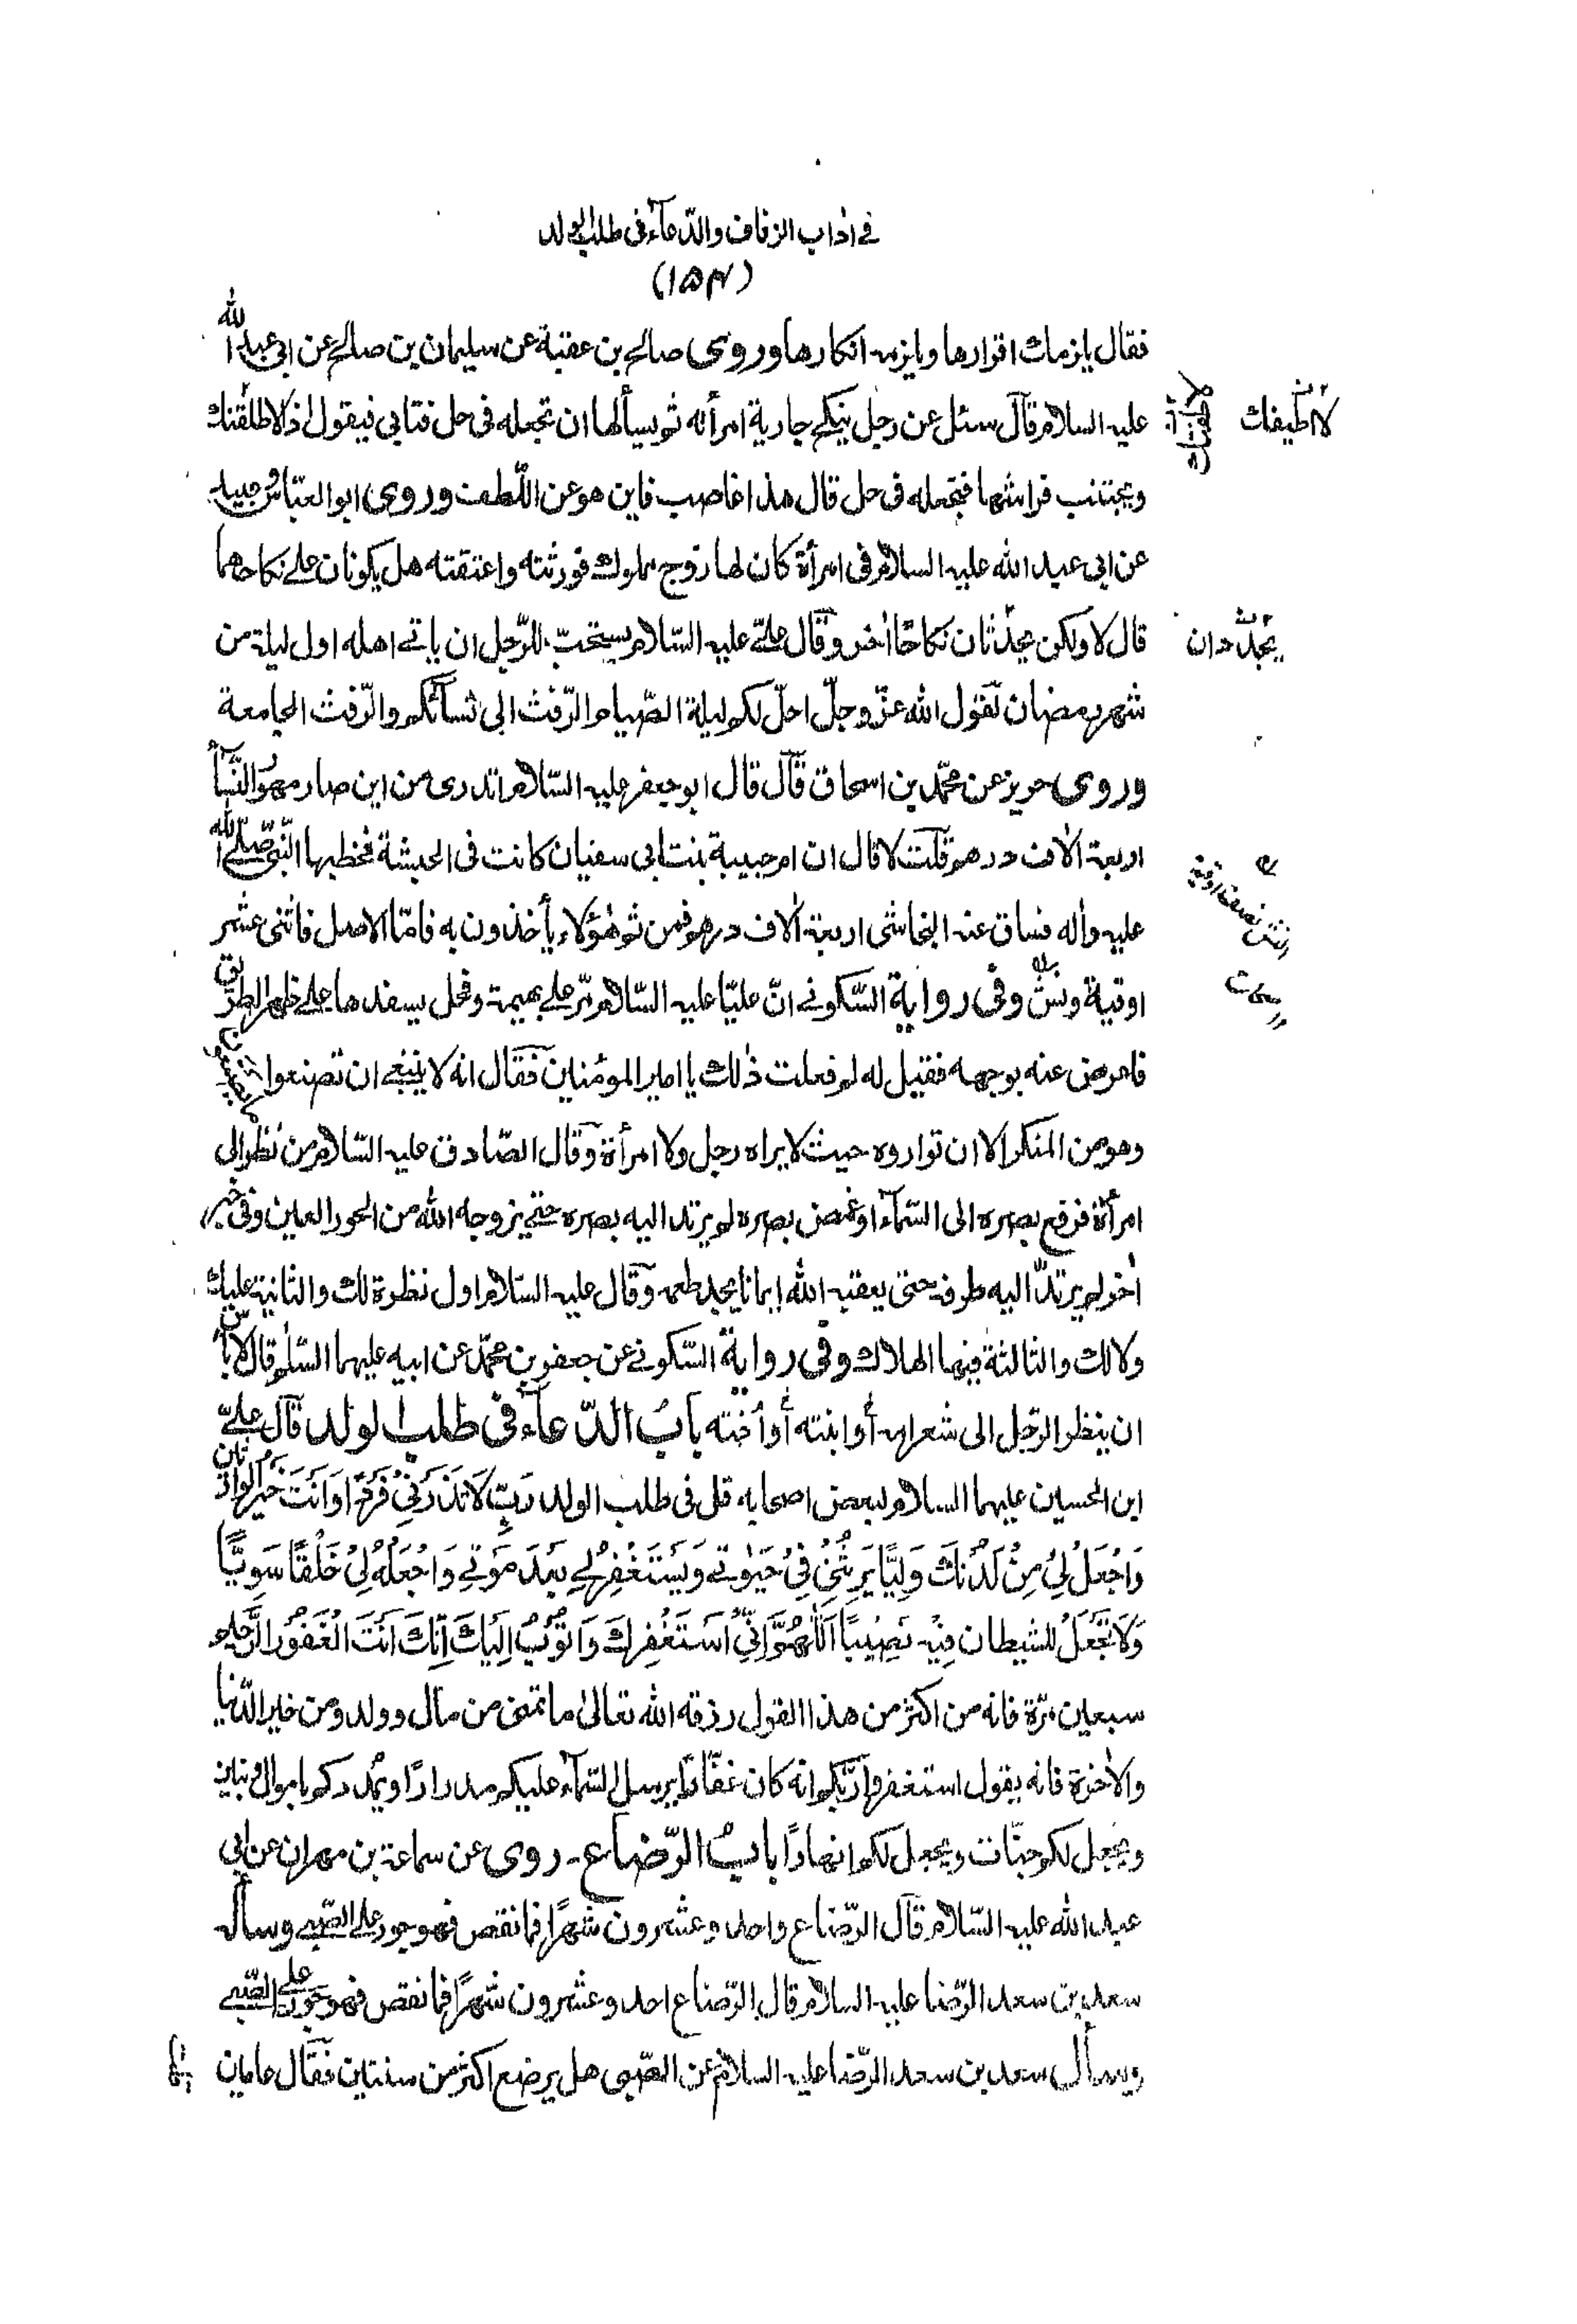 في اداب الزفاف والدّعآء في طلب الولد
(١٥٤)
فقال يلزمك اقرارها ويلزمه انكارها وروى صالح بن عقبة عن سليمان بن صالح عن ابي عبد الله
عليه السلام قال سئل عن رجل ينكح جارية امرأته ثم يسألها ان تجعله في حل فتابى فيقول اذًا لاطلقنك
ويجتنب فراشها فتجعله في حل قال هذا غاصب فاين هو عن اللّطف وروى ابو العبّاس وعبيد
عن ابي عبد الله عليه السلام في امرأة كان لها زوج مملوك فورثته واعتقته هل يكونان على نكاحهما
قال لا ولكن يجدّدان نكاحًا اٰخر وقال علىّ عليه السّلام يستحبّ للرّجل ان ياتي اهله اول ليلة من
شهر رمضان لقول الله عزّ وجلّ احلّ لكم ليلة الصّيام الرّفث الى نسآئكم والرّفث المجامعة
وروى حريز عن محمّد بن اسحاق قال قال ابو جعفر عليه السّلام اتدرى من اين صار مهور النّسآء
اربعة اٰلاف درهم قلت لا قال ان ام حبيبة بنت ابي سفيان كانت في الحبشة فخطبها النّبيّ صلّى الله
عليه واٰله فساق عنه النجاشى اربعة اٰلاف درهم فمن ثم هٰؤلاء يأخذون به فامّا الاصل فاثنى عشر
اوقية ونشّ وفي رواية السّكوني انّ عليّا عليه السّلام مرّ على بهيمة وفحل يسفدها على ظهر الطريق
فاعرض عنه بوجهه فقيل له لم فعلت ذٰلك يا امير المؤمنين فقال انه لا ينبغي ان تصنعوا ما يصنعون
وهو من المنكر الا ان تواروه حيث لا يراه رجل ولا امرأة وقال الصّادق عليه السّلام من نظر الى
امرأة فرفع بصره الى السّمآء او غمض بصره لم يرتد اليه بصره حتى يزوجه الله من الحور العين وفي خبر
اٰخر لم يرتدّ اليه طرفه حتى يعقبه الله ايمانا يجد طعمه وقال عليه السّلام اول نظرة لك والثانية عليك
ولا لك والثالثة فيها الهلاك وفي رواية السّكوني عن جعفر بن محمّد عن ابيه عليهما السّلم قال لا بأس
ان ينظر الرّجل الى شعر امه أو ابنته أو أخته بابُ الدّعآء في طلب الولد قال علىّ
ابن الحسين عليهما السلام لبعض اصحابه قل في طلب الولد رَبِّ لَا تَذَرْنِيْ فَرْدًا وَاَنْتَ خَيْرُ الْوارثين
وَاجْعَلْ لِيْ مِنْ لَدُنْكَ وَلِيًّا يَرِثُنِيْ فِيْ حَيٰوتِي وَيَسْتَغْفِرُ لِي بَعْدَ مَوْتِي وَاجْعَلْهُ لِيْ خَلْقًا سَوِيًّا
وَلَا تَجْعَلْ لِلشيطان فِيْهِ نَصِيْبًا اَللّٰهُمَّ اِنِّيْ اَسْتَغْفِرُكَ وَاَتُوْبُ اِلَيْكَ اِنَّكَ اَنْتَ الْغَفُوْرُ الرَّحيم
سبعين مرّة فانه من اكثر من هذا القول رزقه الله تعالىٰ ما تمنى من مال وولد ومن خير الدّنيا
والاٰخرة فانه يقول استغفروا ربّكم انه كان غفّارًا يرسل السّمآء عليكم مدرارًا ويمدد كم باموال وبنين
ويجعل لكم جنّات ويجعل لكم انهارًا بابُ الرّضاع۔ روى عن سماعة بن مهران عن ابي
عبد الله عليه السّلام قال الرّضاع واحد وعشرون شهرًا فما نقص فهو جور على الصّبي وسأله
سعد بن سعد الرّضا عليه السلام قال الرّضاع احد وعشرون شهرًا فما نقص فهو جور على الصّبي
وسأل سعد بن سعد الرّضا عليه السلام عن الصّبى هل يرضع اكثر من سنتين فقال عامين
يجدّدان